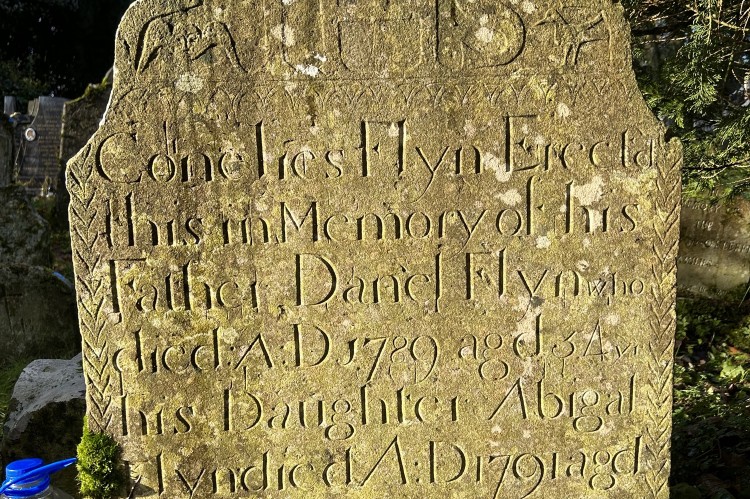 IHS
Cornelies Flyn Erectd
this in Memory of his
Father Daniel Flyn who
died A:D 1789 agd 54 yr
his Daughter Abigal
Flyn died A:D 1791 agd